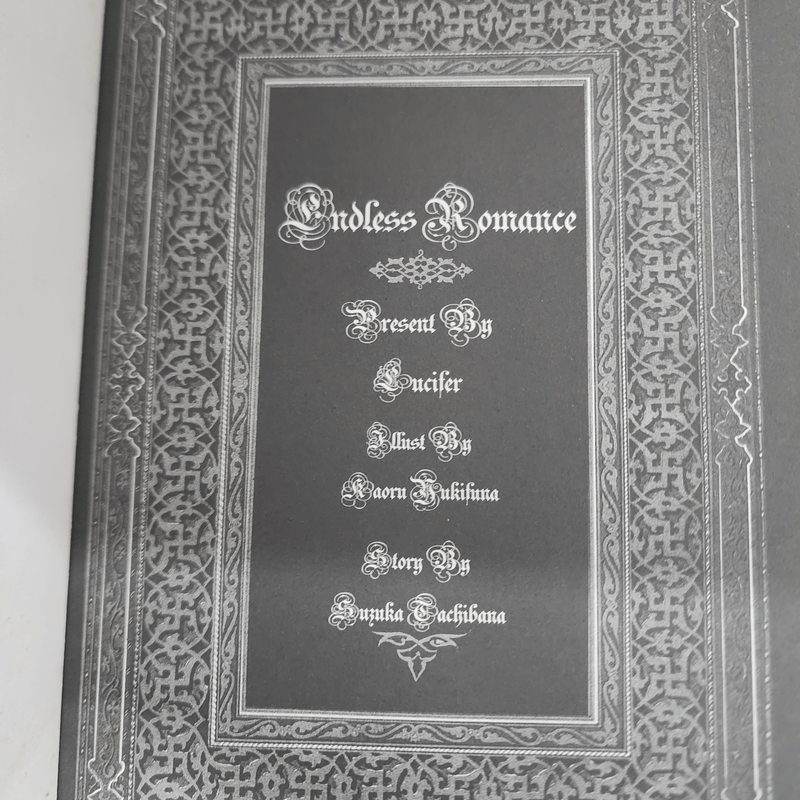 Endless Romance
Present By
Lucifer
Illust By
Kaoru Yukifuna
Story By
Suzuka Tachibana